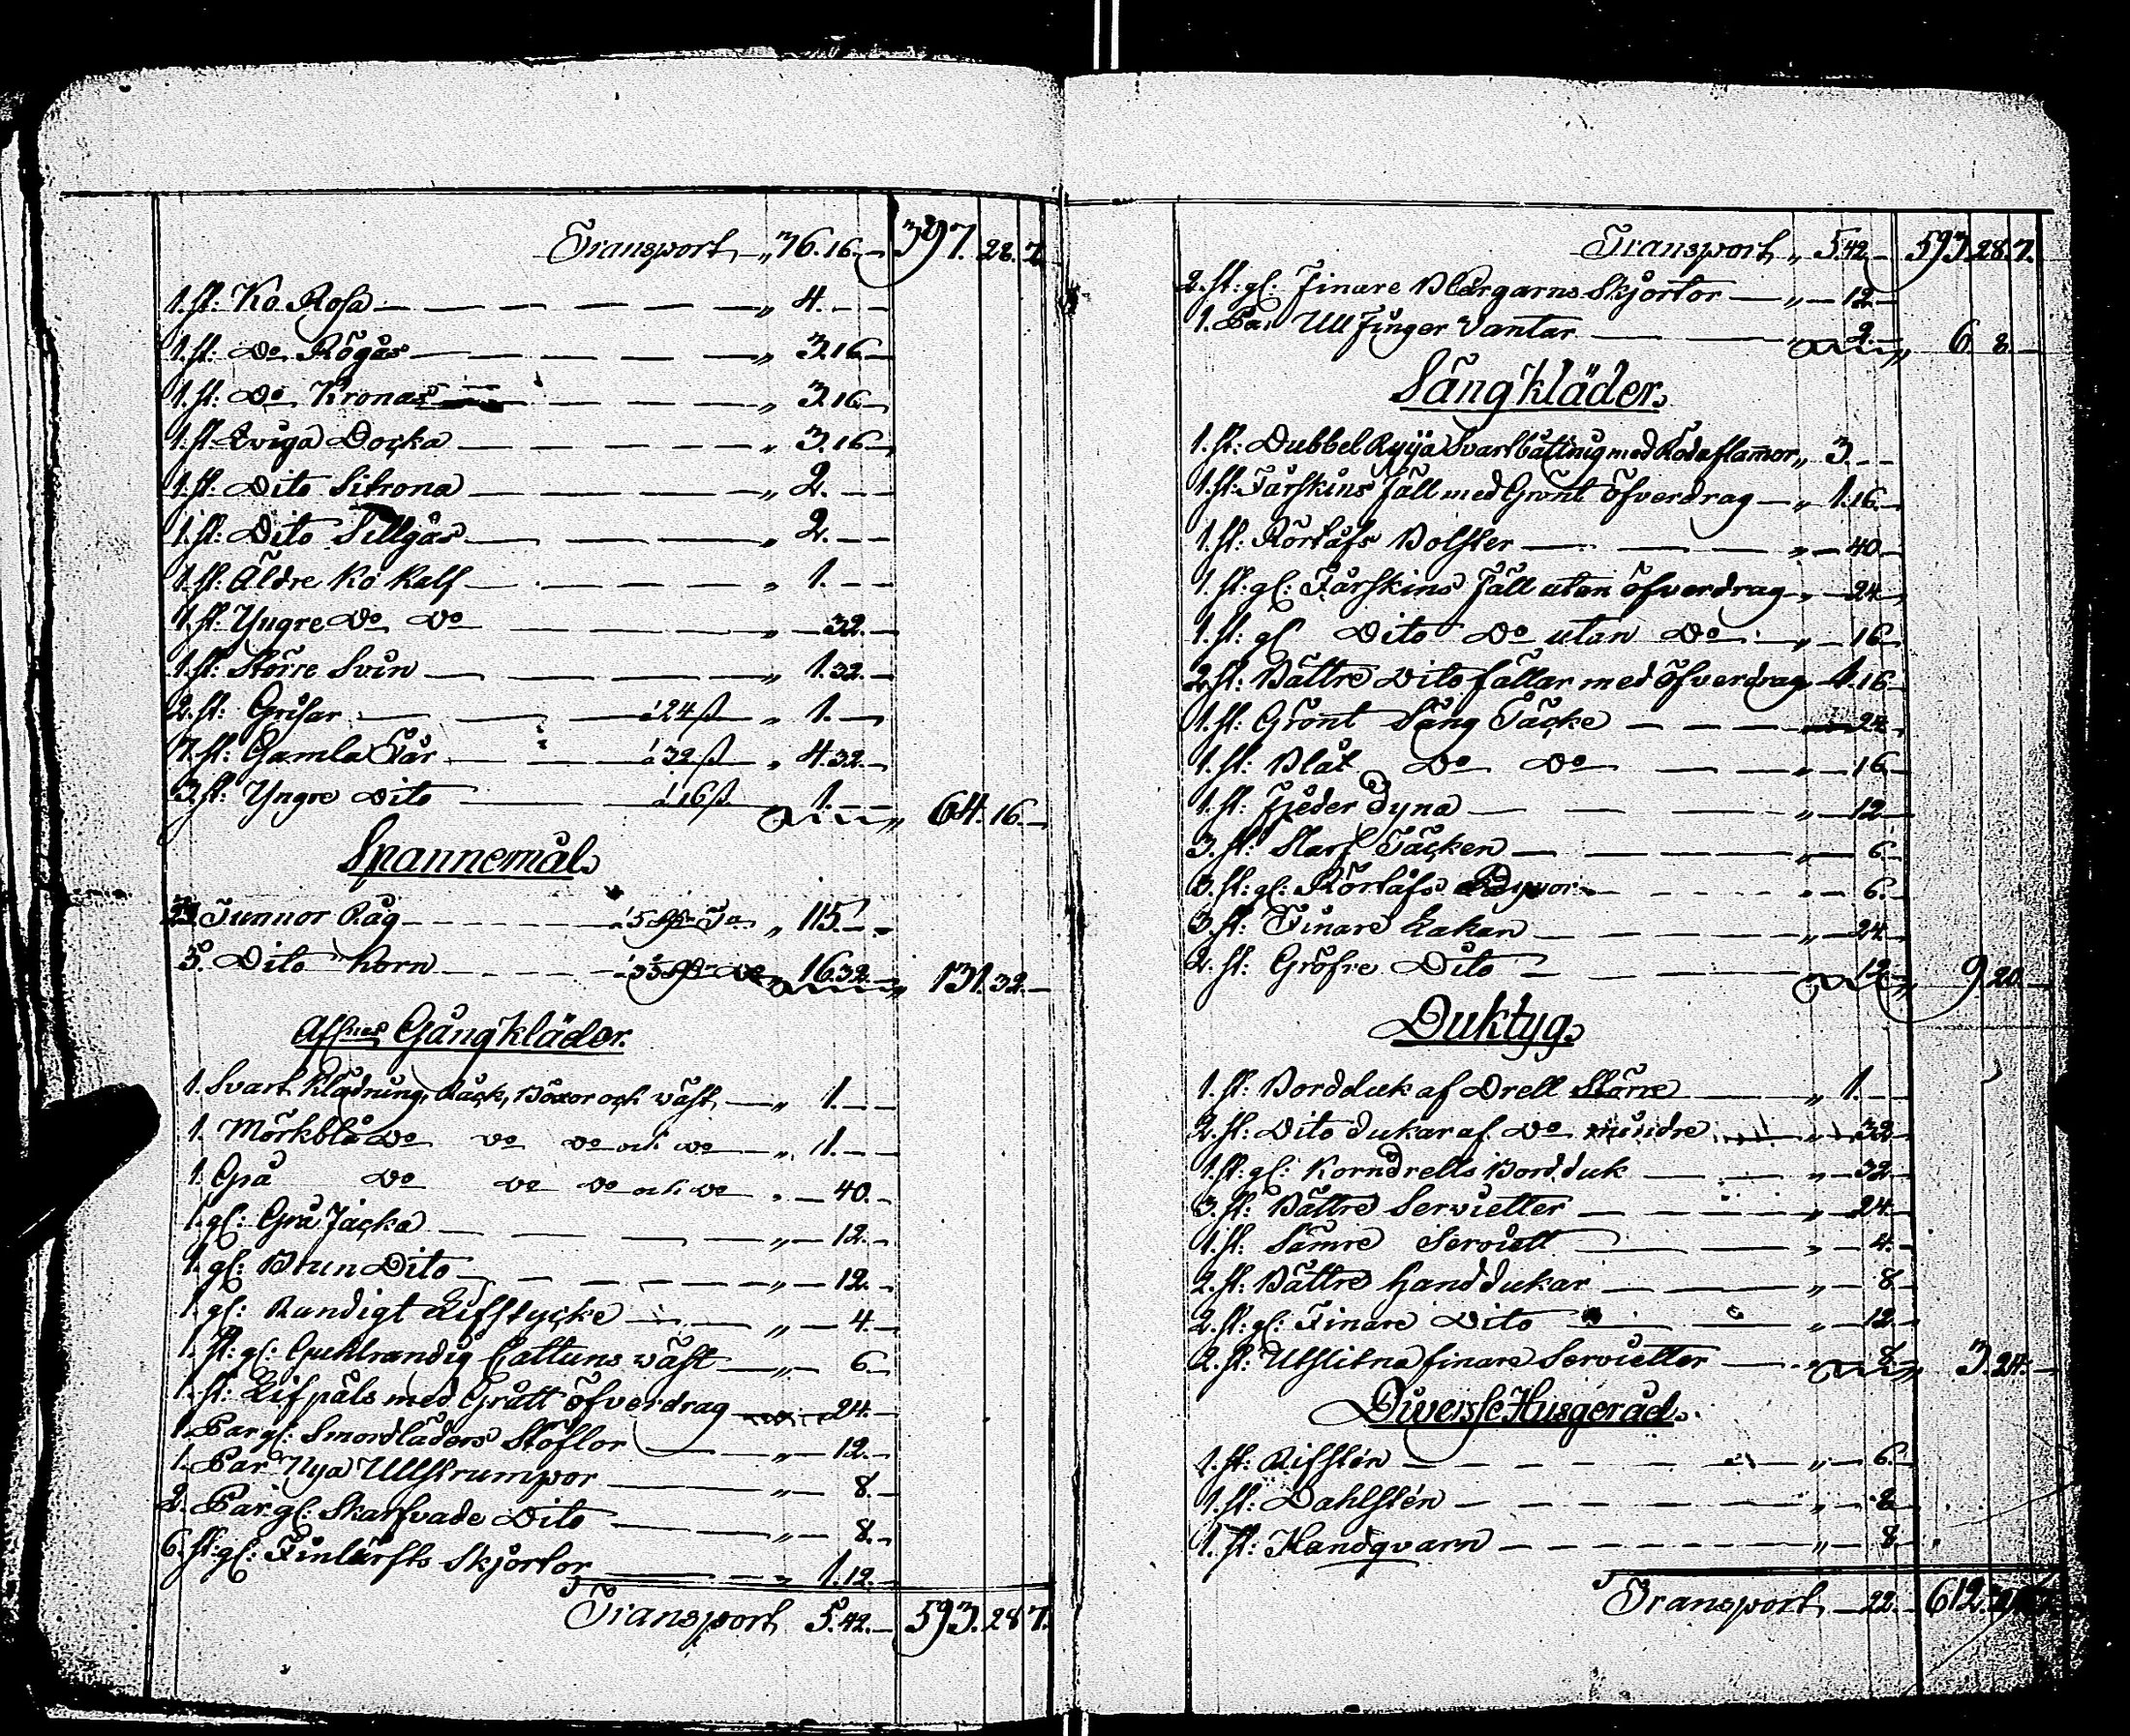 Transport „ 36. 16. – 397. 28. 7.
1. st: Ko Rosa „ 4. – –
1. st: Do Rögås „ 3. 16. –
1. st: Do Kronas „ 3. 16. –
1. st: Qviga Docka „ 3. 16. –
1. st: Dito Sikrona „ 2. – –
1. st: Dito Sillgås „ 2. – –
1. st: Äldre Ko Kalf „ 1. – –
1. st: Yngre Do Do „ – 32. –
1. st: Större Svin „ 1. 32. –
2. st: Grisar á 24 ß „ 1. –
7. st: Gamla Får á 32 ß „ 4. 32. –
3. st: Yngre Dito á 16 ß 1. – – „ 64. 16. –
Spannemål
Tunnor Råg „ 115. – –
5. Dito Korn 16. 32. – „ 131. 32. –
Gångkläder.
1. Svart Klädning, Råck, Böxor och Väst „ 1. – –
1. Mörkblå Do Do Do och Do „ 1. – –
1. Grå Do Do Do och Do „ – 40. –
1. gl: Grå Jacka „ – 12. –
1. gl: Brun Dito „ – 12. –
1. gl: Randigt Lifstycke „ – 4. –
1. st: gl: Guhlrandig Cattuns Väst „ – 6. –
1. st: Lifpäls med Grått öfverdrag – 24. –
1. Par gl: Smordläders Stöflor „ – 12. –
1. Par Nya Ullstrumpor „ – 8. –
2. Par gl: Skarfvade Dito „ – 8. –
6. st: gl: Finlärfts Skjortor „ 1. 12. –
Transport 5. 42. – 593. 28. 7.
Transport „ 5. 42. – 593. 28. 7.
2. st: gl: Finare Blargarns Skjortor „ – 12. –
1. Par Ull Finger Vantar 2. – „ 6. 8. –
Sängkläder.
1. st: Dubbel Ryija Svartbåttnig med Röda flammor „ 3. – –
1. st: Fårskins Fäll med Grönt Öfverdrag „ 1. 16. –
1. st: Rörlåfs Bolster „ – 40. –
1. st: gl: Fårskins Fäll utan öfverdrag „ – 24. –
1. st: gl Dito Do utan Do „ – 16. –
2. st: Bättre Dito fällar med öfverdrag 1. 16. –
1. st: Grönt Säng Täcke – 24. –
1. st: Blåt Do Do „ – 16. –
1. st: Fjeder Dyna „ – 12. –
3. st: Slarf Täcken „ – 6. –
3. st: gl: Rörlåfs Dynor „ – 6. –
3. st: Finare Lakan „ – 24. –
2. st: Gröfre Dito 12. – „ 9. 20. –
Duktyg.
1. st: Bordduk af Drell Större „ 1. – –
2. st: Dito dukar af Do mindre „ – 32. –
1. st: gl: Korndrells Bordduk „ – 32. –
3. st: Bättre Servietter „ – 24. –
1. st: Sämre Serviett „ – 4. –
2. st: Bättre Handdukar „ – 8. –
2. st: gl: Finare Dito „ – 12. –
2. st: Utslitna finare Servietter 8. – „ 3. 24. –
Diverse Husgeråd.
1. st: Rifstén „ – 6. –
1. st: Dahlstén „ – 8. –
1. st: Handqvarn „ – 8. –
Transport – 22. – 612.